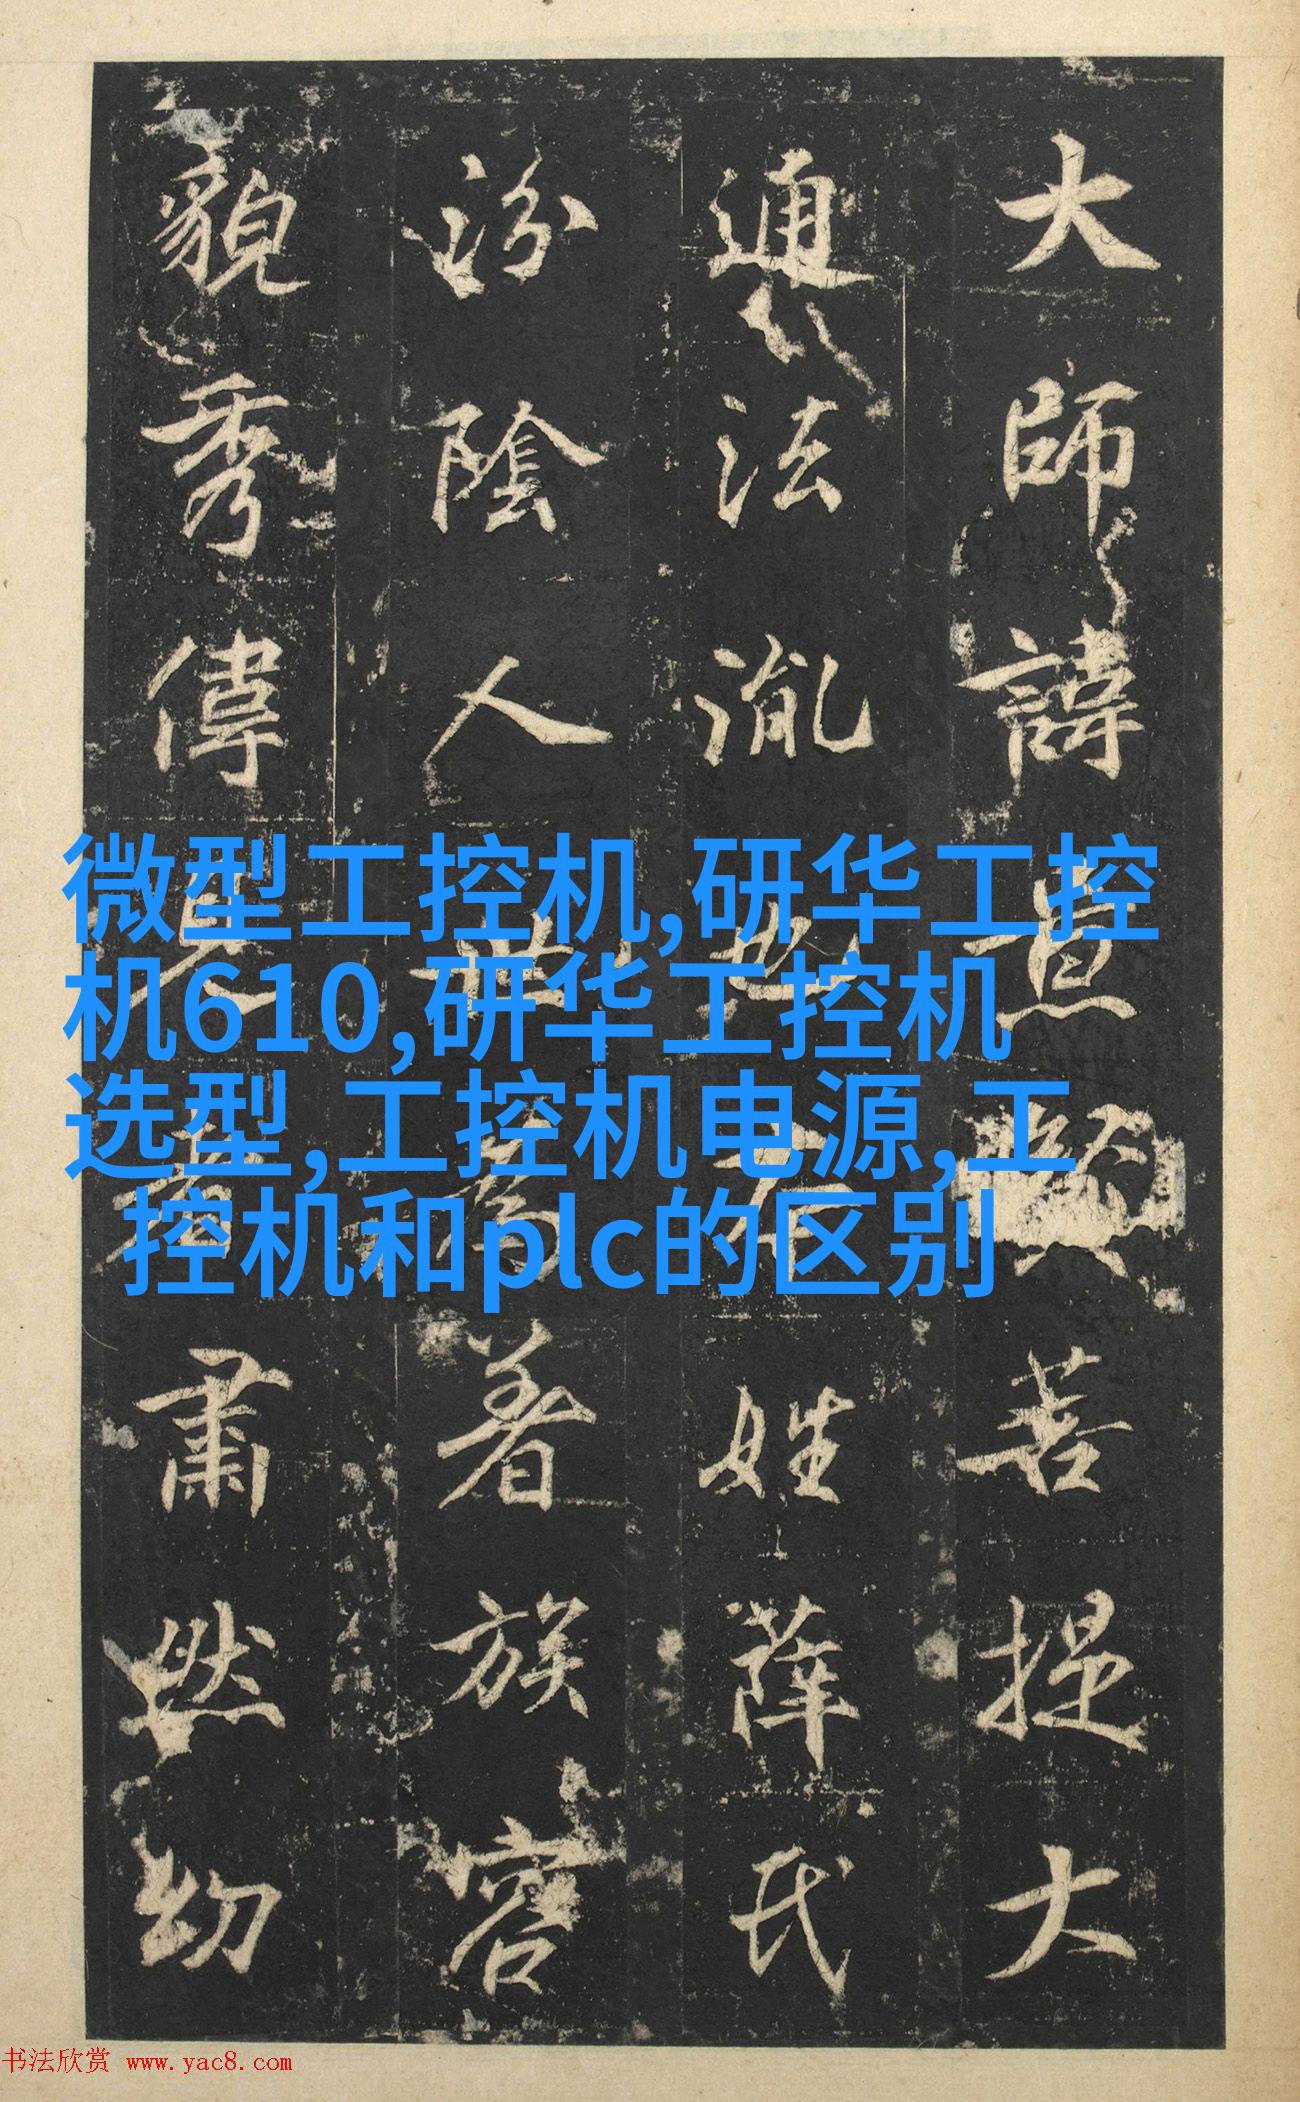 大師諱菩提大
通法胤也姓薛氏
汾陰人世為著族容
貌秀偉見者肅然幼
微型工控机,研华工控
机610,研华工控机
选型,工控机电源,工
控机和plc的区别
书法欣赏 www.yac8.com